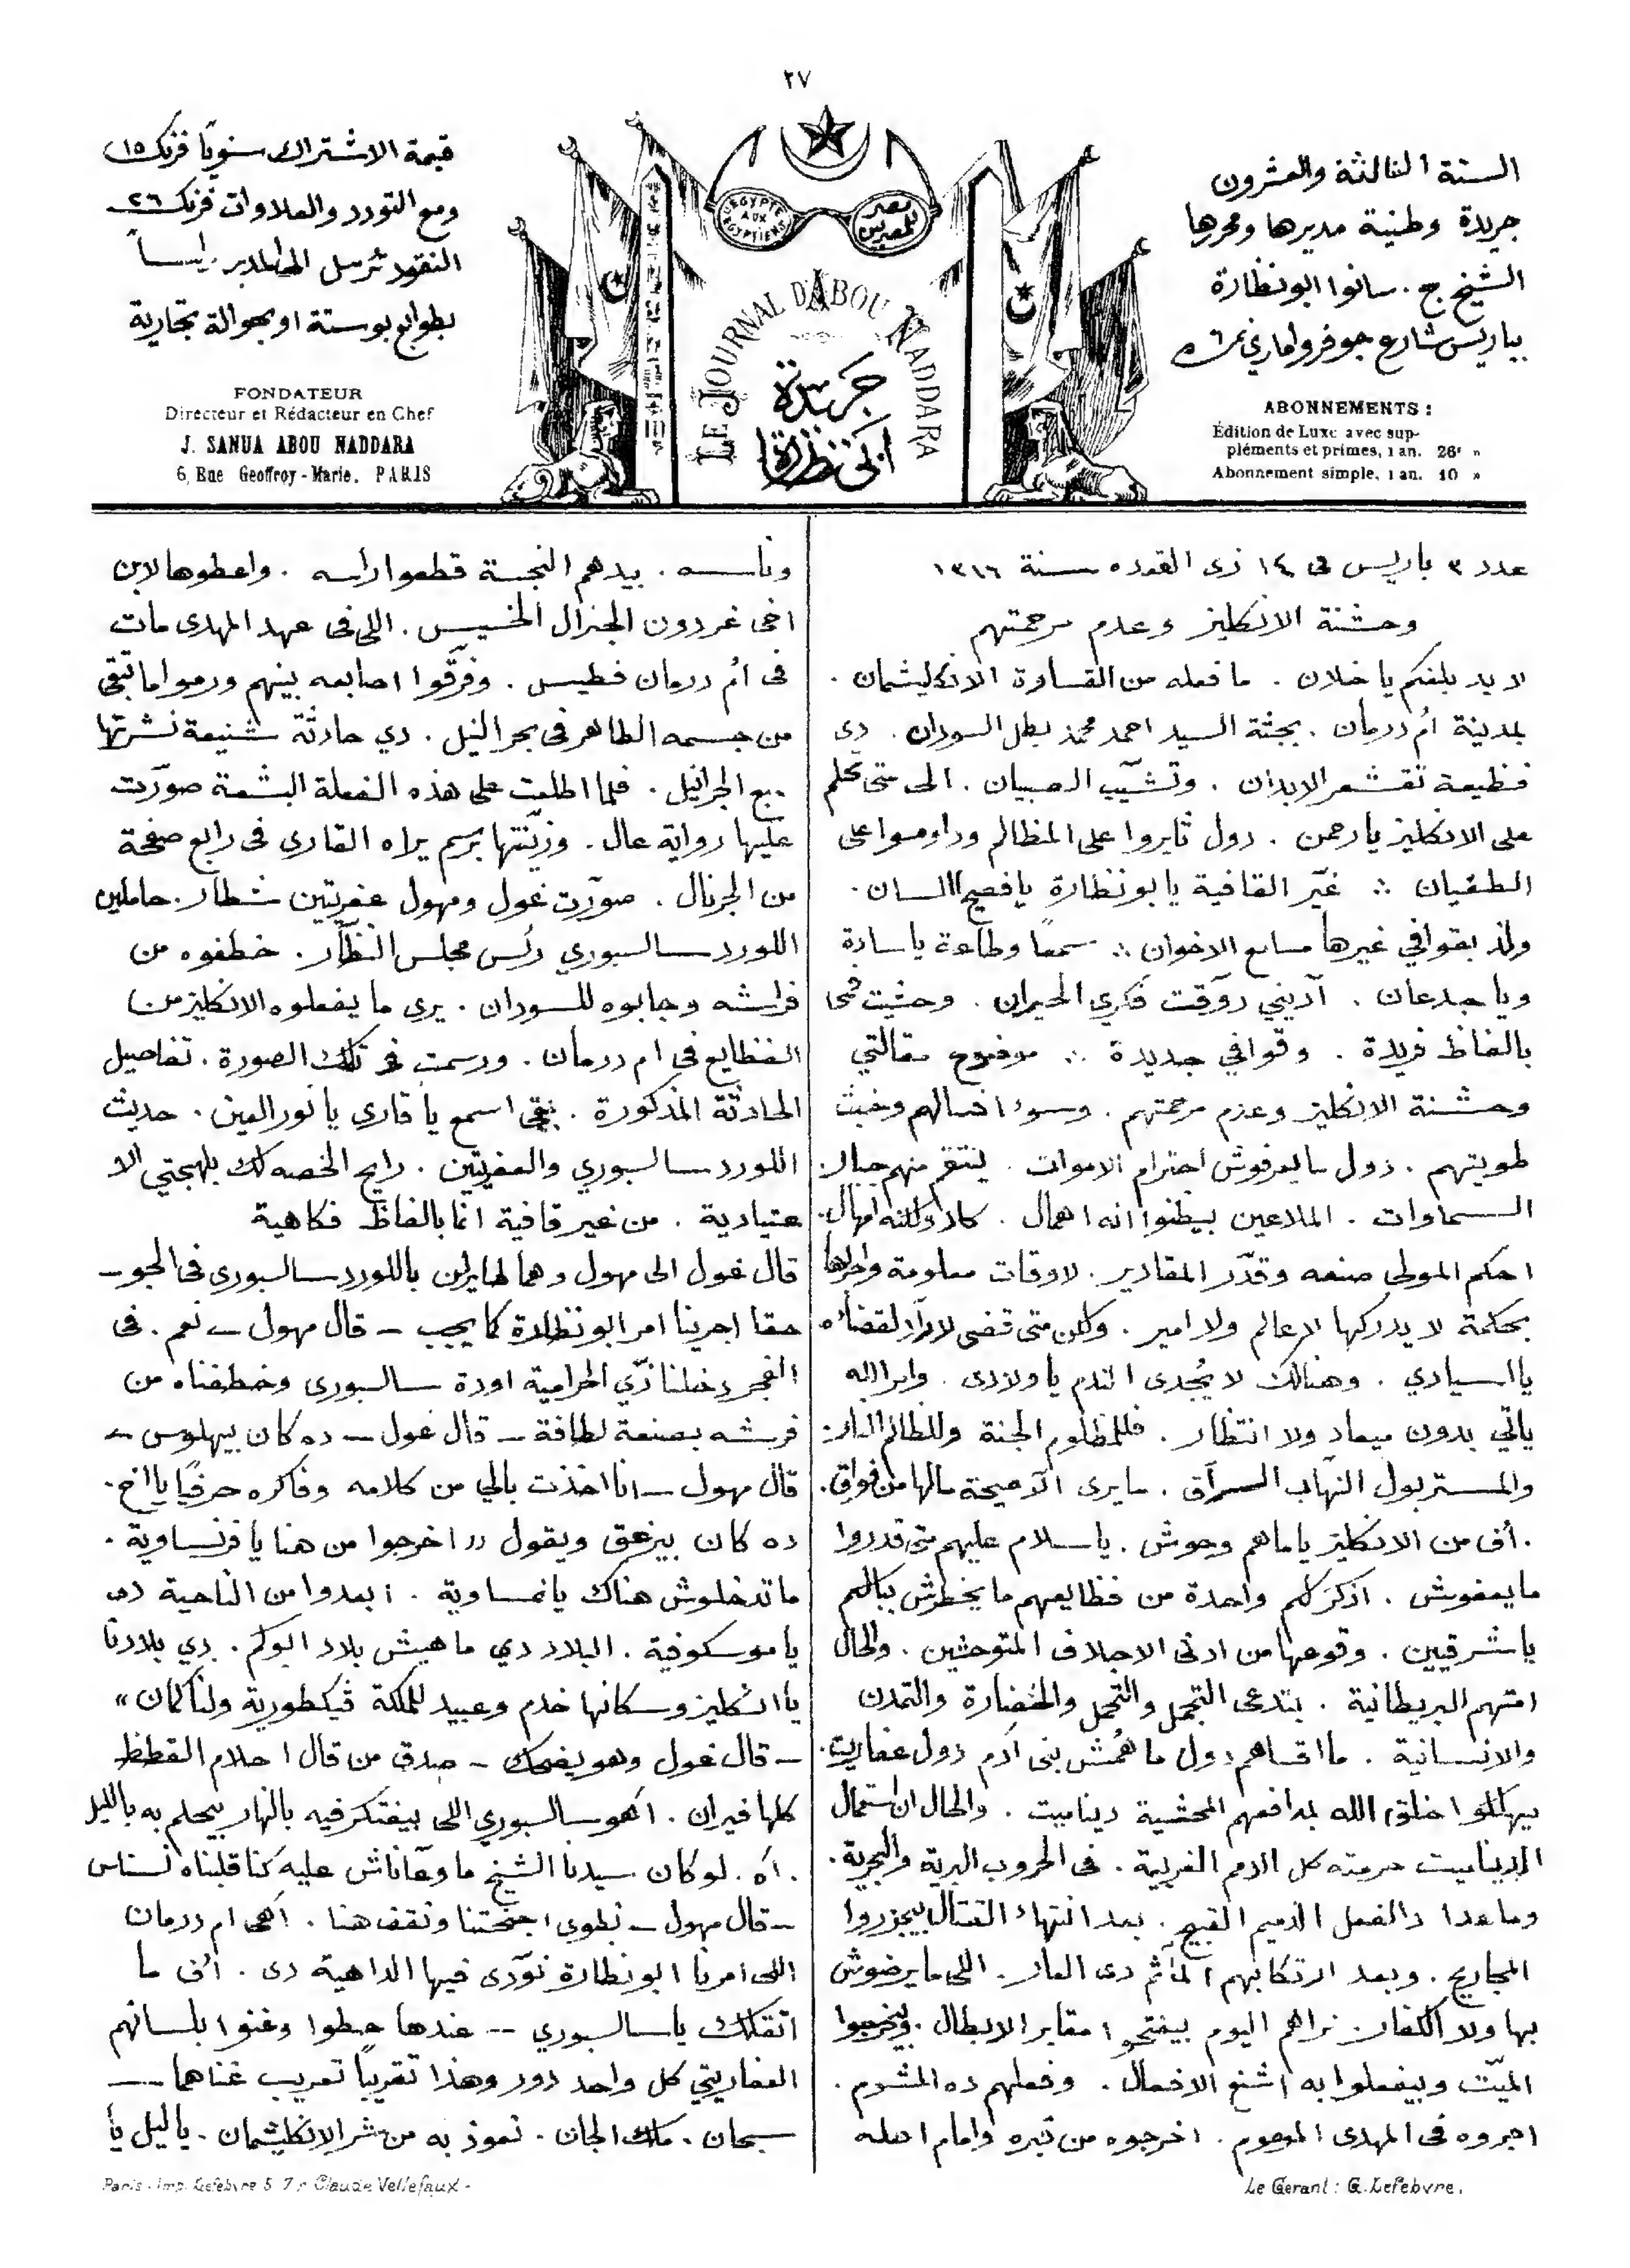 ٢٧
السنة الثالثة والعشرون
جريدة وطنية مديرها ومحررها
الشيخ ج. سانوا ابونظارة
بباريس شارع جوفروا ماري نمرة ٦
ABONNEMENTS :
Édition de Luxe avec sup-
pléments et primes, 1 an. 26f »
Abonnement simple, 1 an. 10 »
EGYPTE
AUX
EGYPTIENS
مصر
للمصريين
LE JOURNAL D'ABOU NADDARA
جريدة
ابي نظارة
قيمة الاشتراك سنويًا فرنك ١٥
ومع التورد والعلاوات فرنك ٢٦
النقود ترسل الى المدير راسًا
بطوابع بوستة او بحوالة تجارية
FONDATEUR
Directeur et Rédacteur en Chef
J. SANUA ABOU NADDARA
6, Rue Geoffroy-Marie. PARIS
عدد ٣ باريس فى ١٤ ذى القعده سنة ١٣١٦
وحشنة الانكليز وعدم مرحمتهم
لابد بلغكم ياخلان . ما فعله من القساوة الانكليشمان .
بمدينة أم درمان . بجثة السيد احمد محمد بطل السودان . دى
فظيعة تقشعر الابدان . وتشيّب الصبيان . الى متى تحلم
على الانكليز يارحمن . دول ثابروا على المظالم وداوموا على
الطغيان ∴ غيّر القافية يابونظارة يافصيح اللسان .
ولذ بقوافي غيرها مسامع الاخوان ∴ سمعًا وطاعة ياسادة
وياجدعان . آديني روّقت فكري الحيران . وحشيت مخى
بالفاظ فريدة . وقوافي جديدة ∴ موضوع مقالتي
وحشنة الانكليز وعدم مرحمتهم . وسوء افعالهم وخبث
طويتهم . دول مايعرفوش احترام الاموات . ينتقم منهم جبار
السماوات . الملاعين بيظنوا انه اهمال . كلا ولكنه امهال .
احكم المولى صنعه وقدّر المقادير . لاوقات معلومة واجراها
بحكمة لا يدركها لا عالم ولا امير . ولكن متى قضى لا رادّ لقضاءه
يااسيادي . وهنالك لا يُجدى الندم ياولادى . وامر الله
ياتي بدون ميعاد ولا انتظار . فللمظلوم الجنة وللظالم النار .
والمستر بول النهّاب السرّاق . مايرى الا صيحة مالها من فواق .
. أف من الانكليز ياماهم وحوش . ياسلام عليهم متى قدروا
مايعفوش . اذكر لكم واحدة من فظايعهم ما يخطرش ببالكم
ياشرقيين . وقوعها من ادنى الاجلاف المتوحشين . والحال
امتهم البريطانية . بتدعى التجمل والتحمل والحضارة والتمدن
والانسانية . ما اقساهم دول ما همش بنى آدم دول عفاريت .
بيهلكوا خلق الله بمدافعهم المحشية ديناميت . والحال ان استعمال
الديناميت حرمته كل الامم الغربية . فى الحروب البرية والبحرية .
وماعدا دالفعل الذميم القبيح . بعد انتهاء القتال بيجزروا
المجاريح . وبعد ارتكابهم المآثم دى العار . اللى مايرضوش
بها ولا الكفار . نراهم اليوم بيفتحوا مقابر الابطال . وبيخرجوا
الميّت وبيفعلوا به اشنع الافعال . وفعلهم ده المشوم .
اجروه فى المهدى المرحوم . اخرجوه من قبره وامام اهله
وناسه . بيدهم النجسة قطعوا راسه . واعطوها لابن
اخى غردون الجنرال الخسيس . اللى فى عهد المهدى مات
فى أم درمان فطيس . وفرّقوا اصابعه بينهم ورموا ما تبقى
من جسمه الطاهر فى بحر النيل . دي حادثة شنيعة نشرتها
جميع الجرانيل . فلما اطلعت على هذه الفعلة البشعة صوّرت
عليها رواية عال . وزيّنتها برسم يراه القاري فى رابع صفحة
من الجرنال . صوّرت غول ومهول عفريتين شطار . حاملين
اللورد سالسبوري رئس مجلس النظّار . خطفوه من
فراشه وجابوه للسودان . يرى ما يفعلوه الانكليز من
الفظايع فى ام درمان . ورسمت فى تلك الصورة . تفاصيل
الحادثة المذكورة . بقى اسمع يا قاري يا نور العين . حديث
اللورد سالسبوري والعفريتين . رايح الخصه لك بلهجتي الا
عتيادية . من غير قافية انما بالفاظ فكاهية
قال غول الى مهول وهما طايرين باللورد سالسبورى فى الجو –
حقا اجرينا امر ابونظارة كما يجب – قال مهول – نعم . فى
الفجر دخلنا زيّ الحرامية اودة سالسبورى وخطفناه من
فرشه بصنعة لطافة – قال غول – ده كان بيهلوس –
قال مهول – انا اخذت بالي من كلامه وفاكره حرفيًا يااخ .
ده كان بيزعق ويقول « اخرجوا من هنا يا فرنساوية .
ماتدخلوش هناك يانمساوية . ابعدوا من الناحية دى
ياموسكوفية . البلاد دي ماهيش بلاد ابوكم . دي بلادنا
ياانكليز وسكانها خدم وعبيد للملكة ڤيكطورية ولنا كمان »
– قال غول وهو يضحك – صدق من قال احلام القطط
كلها فيران . اهو سالسبوري اللى بيفتكر فيه بالنهار بيحلم به بالليل
. اه . لوكان سيدنا الشيخ ما وصّاناش عليه كنا قلبناه نسناس
– قال مهول – نطوى اجنحتنا ونقف هنا . اهى ام درمان
اللى امرنا ابونظارة نورّى فيها الداهية دى . أف ما
اتقلك ياسالسبوري -- عندها حطوا وغنوا بلسانهم
العفاريتي كل واحد دور وهذا تقريبًا تعريب غناهما --
سبحان . ملك الجان . نعوذ به من شر الانكليشمان . ياليل يا
Le Gérant : G. Lefebvre.
Paris. Imp. Lefebvre 5. 7 r. Claude Vellefaux -